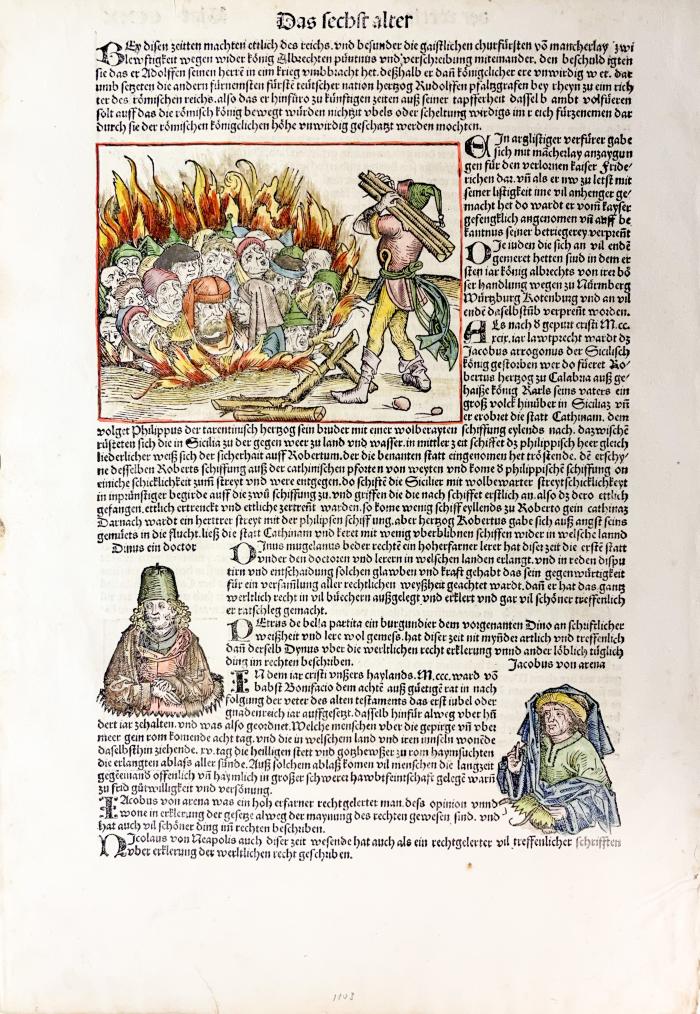 Das sechst alter
BEy disen zeitten machten ettlich des reichs. vnd besunder die gaistlichen churfürsten võ mancherlay zwi
lewftigkeit wegen wider könig Albrechten püntnus vnd verschreibung miteinander. den beschuldigten
sie das er Adolffen seinen herrẽ in ein krieg vmbbracht het. deßhalb er dañ königelicher ere vnwirdig wer. dar
umb setzten die andern fürnemsten fürstẽ teütscher nation hertzog Rudolffen pfaltzgrafen bey rheyn zu eim rich
ter des römischen reichs. also das er hinfüro zu künftigen zeiten auß seiner tapfferheit dasselb ambt volfüeren
solt auff das die römisch könig bewegt würden nichtzit vbels oder scheltung wirdigs im reich fürzenemen dar
durch sie der römischen königclichen höhe vnwirdig geschatzt werden mochten.
EIn arglistiger verfürer gabe
sich mit mãcherlay anzaygun
gen für den verlornen kaiser Fride
richen dar. vñ als er nw zu letst mit
seiner listigkeit ime vil anhenger ge
macht het do wardt er vom kayser
gefengklich angenomen vñ auff be
kantnus seiner betriegerey verpreñt
DIe iuden die sich an vil endẽ
gemeret hetten sind in dem er
sten iar könig albrechts von irer bö
ser handlung wegen zu Nürmberg
Würtzburg Rotenburg vnd an vil
endẽ daselbstũb verpreñt worden.
ALs nach d gepurt cristi M.cc.
xcix. iar lawtprecht wardt dz
Jacobus arrogonus der Sicilisch
könig gestorben wer do füeret Ro
bertus hertzog zu Calabria auß ge
haiße könig Karls seins vaters ein
groß volck hinüber in Siciliaz vñ
er erobret die statt Cathinam. dem
volget Philippus der tarentinisch hertzog sein bruder mit einer wolberayten schiffung eylends nach. dazwischẽ
rüsteten sich die in Sicilia zu der gegen weer zu land vnd wasser. in mittler zeit schiffet dz philippisch heer gleich
liederlicher weiß sich der sicherhait auff Robertum. der die benanten statt eingenomen het tröstende. dẽ erschy
ne desselben Roberts schiffung auß der cathinischen pforten von weyten vnd kome d philippischẽ schiffung on
einiche schicklichkeyt zum streyt vnd were entgegen. do schiftẽ die Sicilier mit wolbewarter streytschicklichkeyt
in inprünstiger begirde auff die zwu schiffung zu. vnd griffen die die nach schiffet erstlich an. also dz dero ettlich
gefangen. ettlich ertrenckt vnd ettliche zertreñt warden. so kome wenig schiff eyllends zu Roberto gein cathinaz
Darnach wardt ein herttrer streyt mit der philipsen schiffung. aber hertzog Robertus gabe sich auß angst seins
gemüets in die flucht. ließ die statt Cathinam vnd keret mit wenig vberblibnen schiffen wider in welsche lannd
Dinus ein doctor
DInus mugelanus beder rechtẽ ein hoherfarner lerer hat diser zeit die erstẽ statt
vnder den doctoren vnd lerern in welschen landen erlangt. vnd in reden dispu
tirn vnd entschaidung solchen glawben vnd kraft gehabt das sein gegenwürtigkeit
für ein versamlung aller rechtlichen weyßheit geachtet wardt. dañ er hat das gantz
werltlich recht in vil büechern außgelegt vnd erklert vnd gar vil schöner treffenlich
er ratschleg gemacht.
PEtrus de bella partita ein burgundier dem vorgenanten Dino an schriftlicher
weißheit vnd lere wol gemeß. hat diser zeit nit mynder artlich vnd treffenlich
dañ derselb Dynus vber die werltlichen recht erklerung vnnd ander löblich tüglich
ding im rechten beschriben.
Jacobus von arena
IN dem iar cristi vnßers haylands. M.ccc. ward võ
babst Bonifacio dem achtẽ auß güetigẽ rat in nach
folgung der veter des alten testaments das erst iubel oder
gnadenreich iar auffgesetzt. dasselb hinfür alweg vber hũ
dert iar zehalten. vnd was also geordnet. Welche menschen vber die gepirge vñ vber
meer gein rom komende acht tag. vnd die in welschen land vnd iren innseln wonẽde
daselbsthin ziehende. xv. tag die heilligen stett vnd gotzhewßer zu rom haymsuchten
die erlangten ablass aller sünde. Auß solchem ablaß komen vil menschen die langzeit
gegẽeinand offenlich vñ haymlich in großer schwerer hawbtfeintschaft gelegẽ warñ
zu frid gütwilligkeit vnd versönung.
JAcobus von arena was ein hoh erfarner rechtgelerter man. dess opinion vnnd
wone in erklerung der gesetze alweg der maynung des rechten gewesen sind. vnd
hat auch vil schöner ding im rechten beschriben.
NIcolaus von Neapolis auch diser zeit wesende hat auch als ein rechtgelerter vil treffenlicher schrifften
vber erklerung der werltlichen recht geschriben.
1103